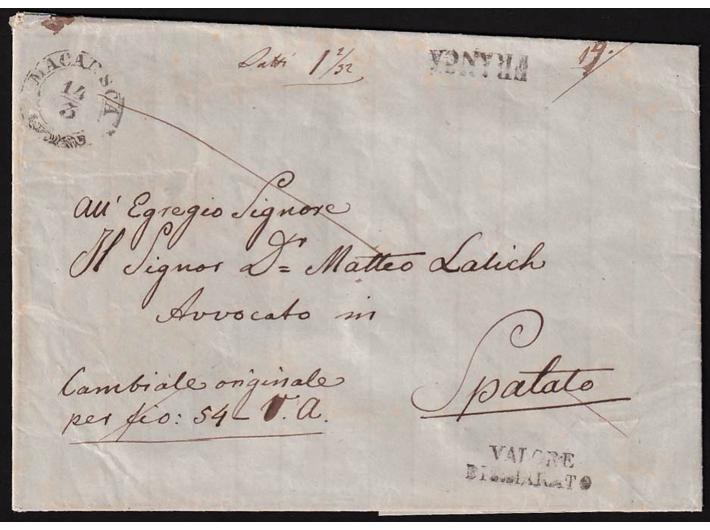 MACARSCA
14
3
Latti 1 1/32
FRANCA
19.
All' Egregio Signore
Il Signor Dr= Matteo Lalich
Avvocato in
Spalato
Cambiale originale
per fio: 54 - V. A.
VALORE
DICHIARATO